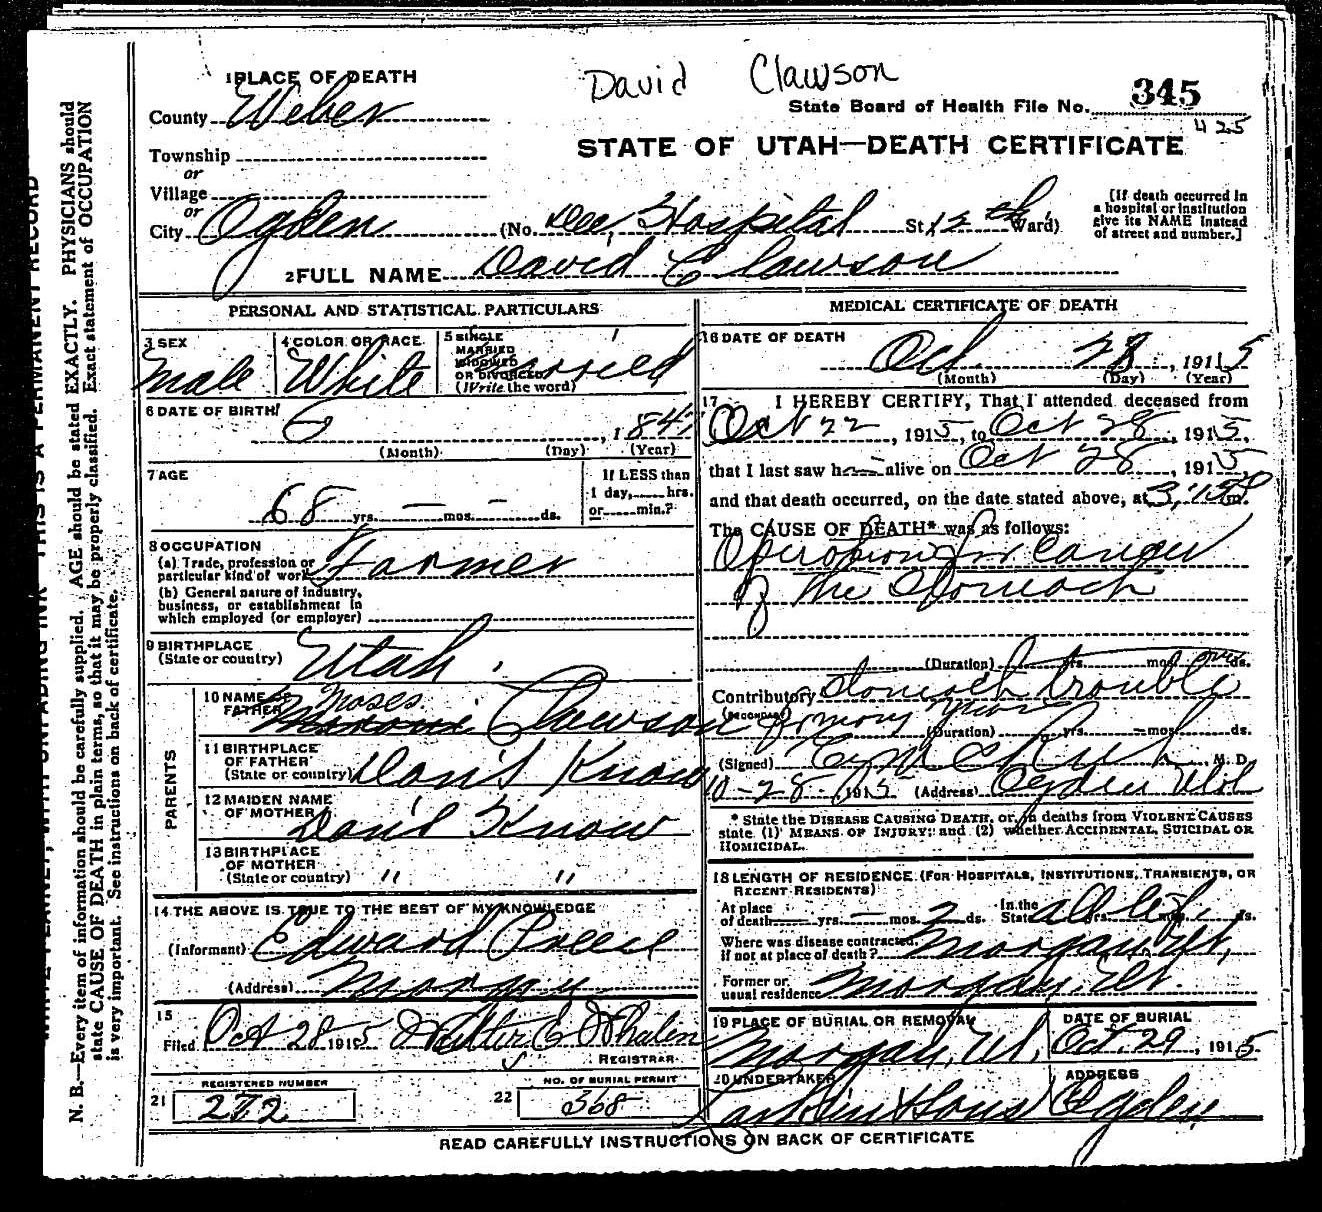 David Clawson
1 PLACE OF DEATH
State Board of Health File No. 345
County Weber
425
Township
STATE OF UTAH—DEATH CERTIFICATE
or
Village
or
City Ogden (No. Dee Hospital St 12th Ward)
[If death occurred in
a hospital or institution
give its NAME instead
of street and number.]
2 FULL NAME David Clawson
PERSONAL AND STATISTICAL PARTICULARS
3 SEX
Male
4 COLOR OR RACE
White
5 SINGLE
MARRIED
WIDOWED
OR DIVORCED
(Write the word)
Married
6 DATE OF BIRTH
, 1847
(Month) (Day) (Year)
7 AGE
68 yrs. — mos. — ds.
If LESS than
1 day, hrs.
or min.?
8 OCCUPATION
(a) Trade, profession or
particular kind of work Farmer
(b) General nature of industry,
business, or establishment in
which employed (or employer)
9 BIRTHPLACE
(State or country) Utah
PARENTS
10 NAME OF
FATHER Moses Clawson
11 BIRTHPLACE
OF FATHER
(State or country) Don't Know
12 MAIDEN NAME
OF MOTHER Don't Know
13 BIRTHPLACE
OF MOTHER
(State or country) " "
14 THE ABOVE IS TRUE TO THE BEST OF MY KNOWLEDGE
(Informant) Edward Preece
(Address) Morgan
15
Filed Oct 28 1915 Walter E Whalen
REGISTRAR
REGISTERED NUMBER
21 272
NO. OF BURIAL PERMIT
22 368
MEDICAL CERTIFICATE OF DEATH
16 DATE OF DEATH
Oct 28, 1915
(Month) (Day) (Year)
17 I HEREBY CERTIFY, That I attended deceased from
Oct 22, 1915, to Oct 28, 1915,
that I last saw h alive on Oct 28, 1915,
and that death occurred, on the date stated above, at 3:15 P m.
The CAUSE OF DEATH* was as follows:
Operation for Cancer
of the Stomach
(Duration) yrs. mos. ds.
Contributory Stomach trouble
(SECONDARY) for many years
(Duration) yrs. — mos. ds.
(Signed) M. D.
10-28-1915 (Address) Ogden Utah
* State the DISEASE CAUSING DEATH, or, in deaths from VIOLENT CAUSES
state (1) MEANS OF INJURY; and (2) whether ACCIDENTAL, SUICIDAL OR
HOMICIDAL.
18 LENGTH OF RESIDENCE (FOR HOSPITALS, INSTITUTIONS, TRANSIENTS, OR
RECENT RESIDENTS)
At place
of death — yrs. — mos. 2 ds.
In the
State all life yrs. mos. ds.
Where was disease contracted,
if not at place of death? Morgan, Ut.
Former or
usual residence Morgan, Ut.
19 PLACE OF BURIAL OR REMOVAL
Morgan, Ut.
DATE OF BURIAL
Oct. 29, 1915
20 UNDERTAKER
Larkin & Sons
ADDRESS
Ogden
READ CAREFULLY INSTRUCTIONS ON BACK OF CERTIFICATE
N. B.—Every item of information should be carefully supplied. AGE should be stated EXACTLY. PHYSICIANS should
state CAUSE OF DEATH in plain terms, so that it may be properly classified. Exact statement of OCCUPATION
is very important. See instructions on back of certificate.